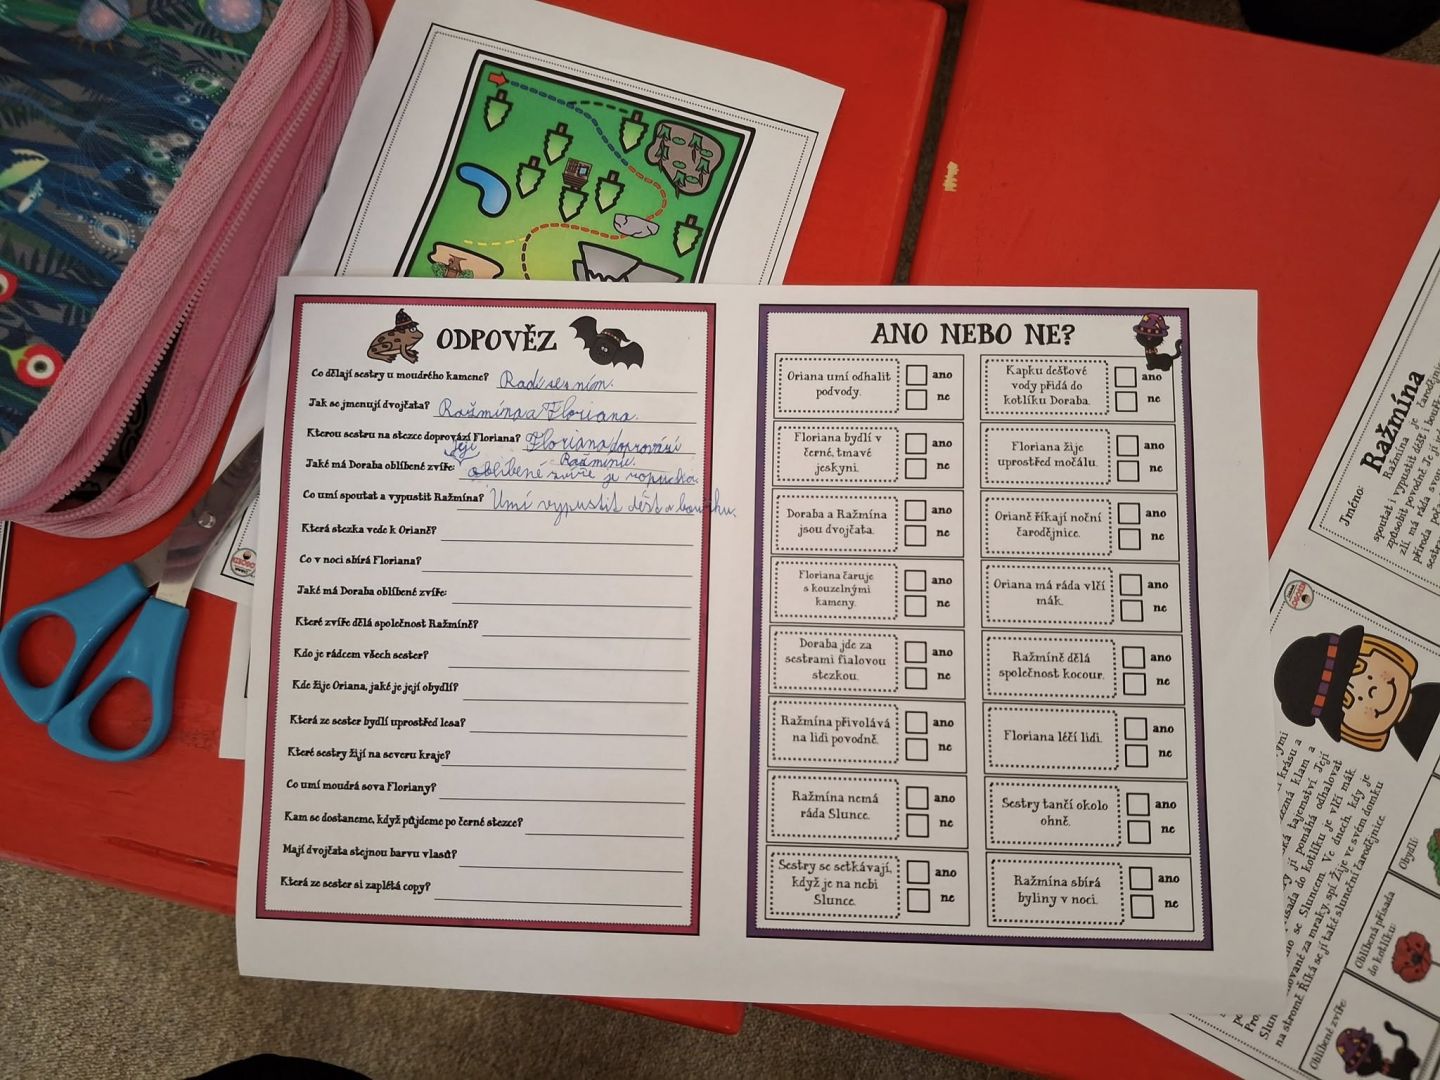 ODPOVĚZ
Co dělají sestry u moudrého kamene? Radí se s ním.
Jak se jmenují dvojčata? Ražmína a Floriana.
Kterou sestru na stezce doprovází Floriana? Floriana doprovází
Ražmínu.
Jaké má Doraba oblíbené zvíře: Její
oblíbené zvíře je ropucha.
Co umí spoutat a vypustit Ražmína? Umí vypustit déšt a bouřku.
Která stezka vede k Orianě?
Co v noci sbírá Floriana?
Jaké má Doraba oblíbené zvíře:
Které zvíře dělá společnost Ražmíně?
Kdo je rádcem všech sester?
Kde žije Oriana, jaké je její obydlí?
Která ze sester bydlí uprostřed lesa?
Které sestry žijí na severu kraje?
Co umí moudrá sova Floriany?
Kam se dostaneme, když půjdeme po černé stezce?
Mají dvojčata stejnou barvu vlasů?
Která ze sester si zaplétá copy?
ANO NEBO NE?
Oriana umí odhalit
podvody.
ano
ne
Kapku dešťové
vody přidá do
kotlíku Doraba.
ano
ne
Floriana bydlí v
černé, tmavé
jeskyni.
ano
ne
Floriana žije
uprostřed močálu.
ano
ne
Doraba a Ražmína
jsou dvojčata.
ano
ne
Orianě říkají noční
čarodějnice.
ano
ne
Floriana čaruje
s kouzelnými
kameny.
ano
ne
Oriana má ráda vlčí
mák.
ano
ne
Doraba jde za
sestrami fialovou
stezkou.
ano
ne
Ražmíně dělá
společnost kocour.
ano
ne
Ražmína přivolává
na lidi povodně.
ano
ne
Floriana léčí lidi.
ano
ne
Ražmína nemá
ráda Slunce.
ano
ne
Sestry tančí okolo
ohně.
ano
ne
Sestry se setkávají,
když je na nebi
Slunce.
ano
ne
Ražmína sbírá
byliny v noci.
ano
ne
Ražmína
Jméno: Ražmína je čarodějnice
spoutat i vypustit déšť, bouřku
způsobit povodně. Je jí
zlí, má ráda svou
příroda
sestra
krásu a
klam a
tajemství. Její
jí pomáhá odhalovat
do kotlíku je vlčí mák.
se Sluncem. Ve dnech, kdy je
za mraky, spí. Žije ve svém domku
na stromě. Říká se jí také sluneční čarodějnice.
Obydlí:
Oblíbená přísada
do kotlíku:
Oblíbené zvíře: